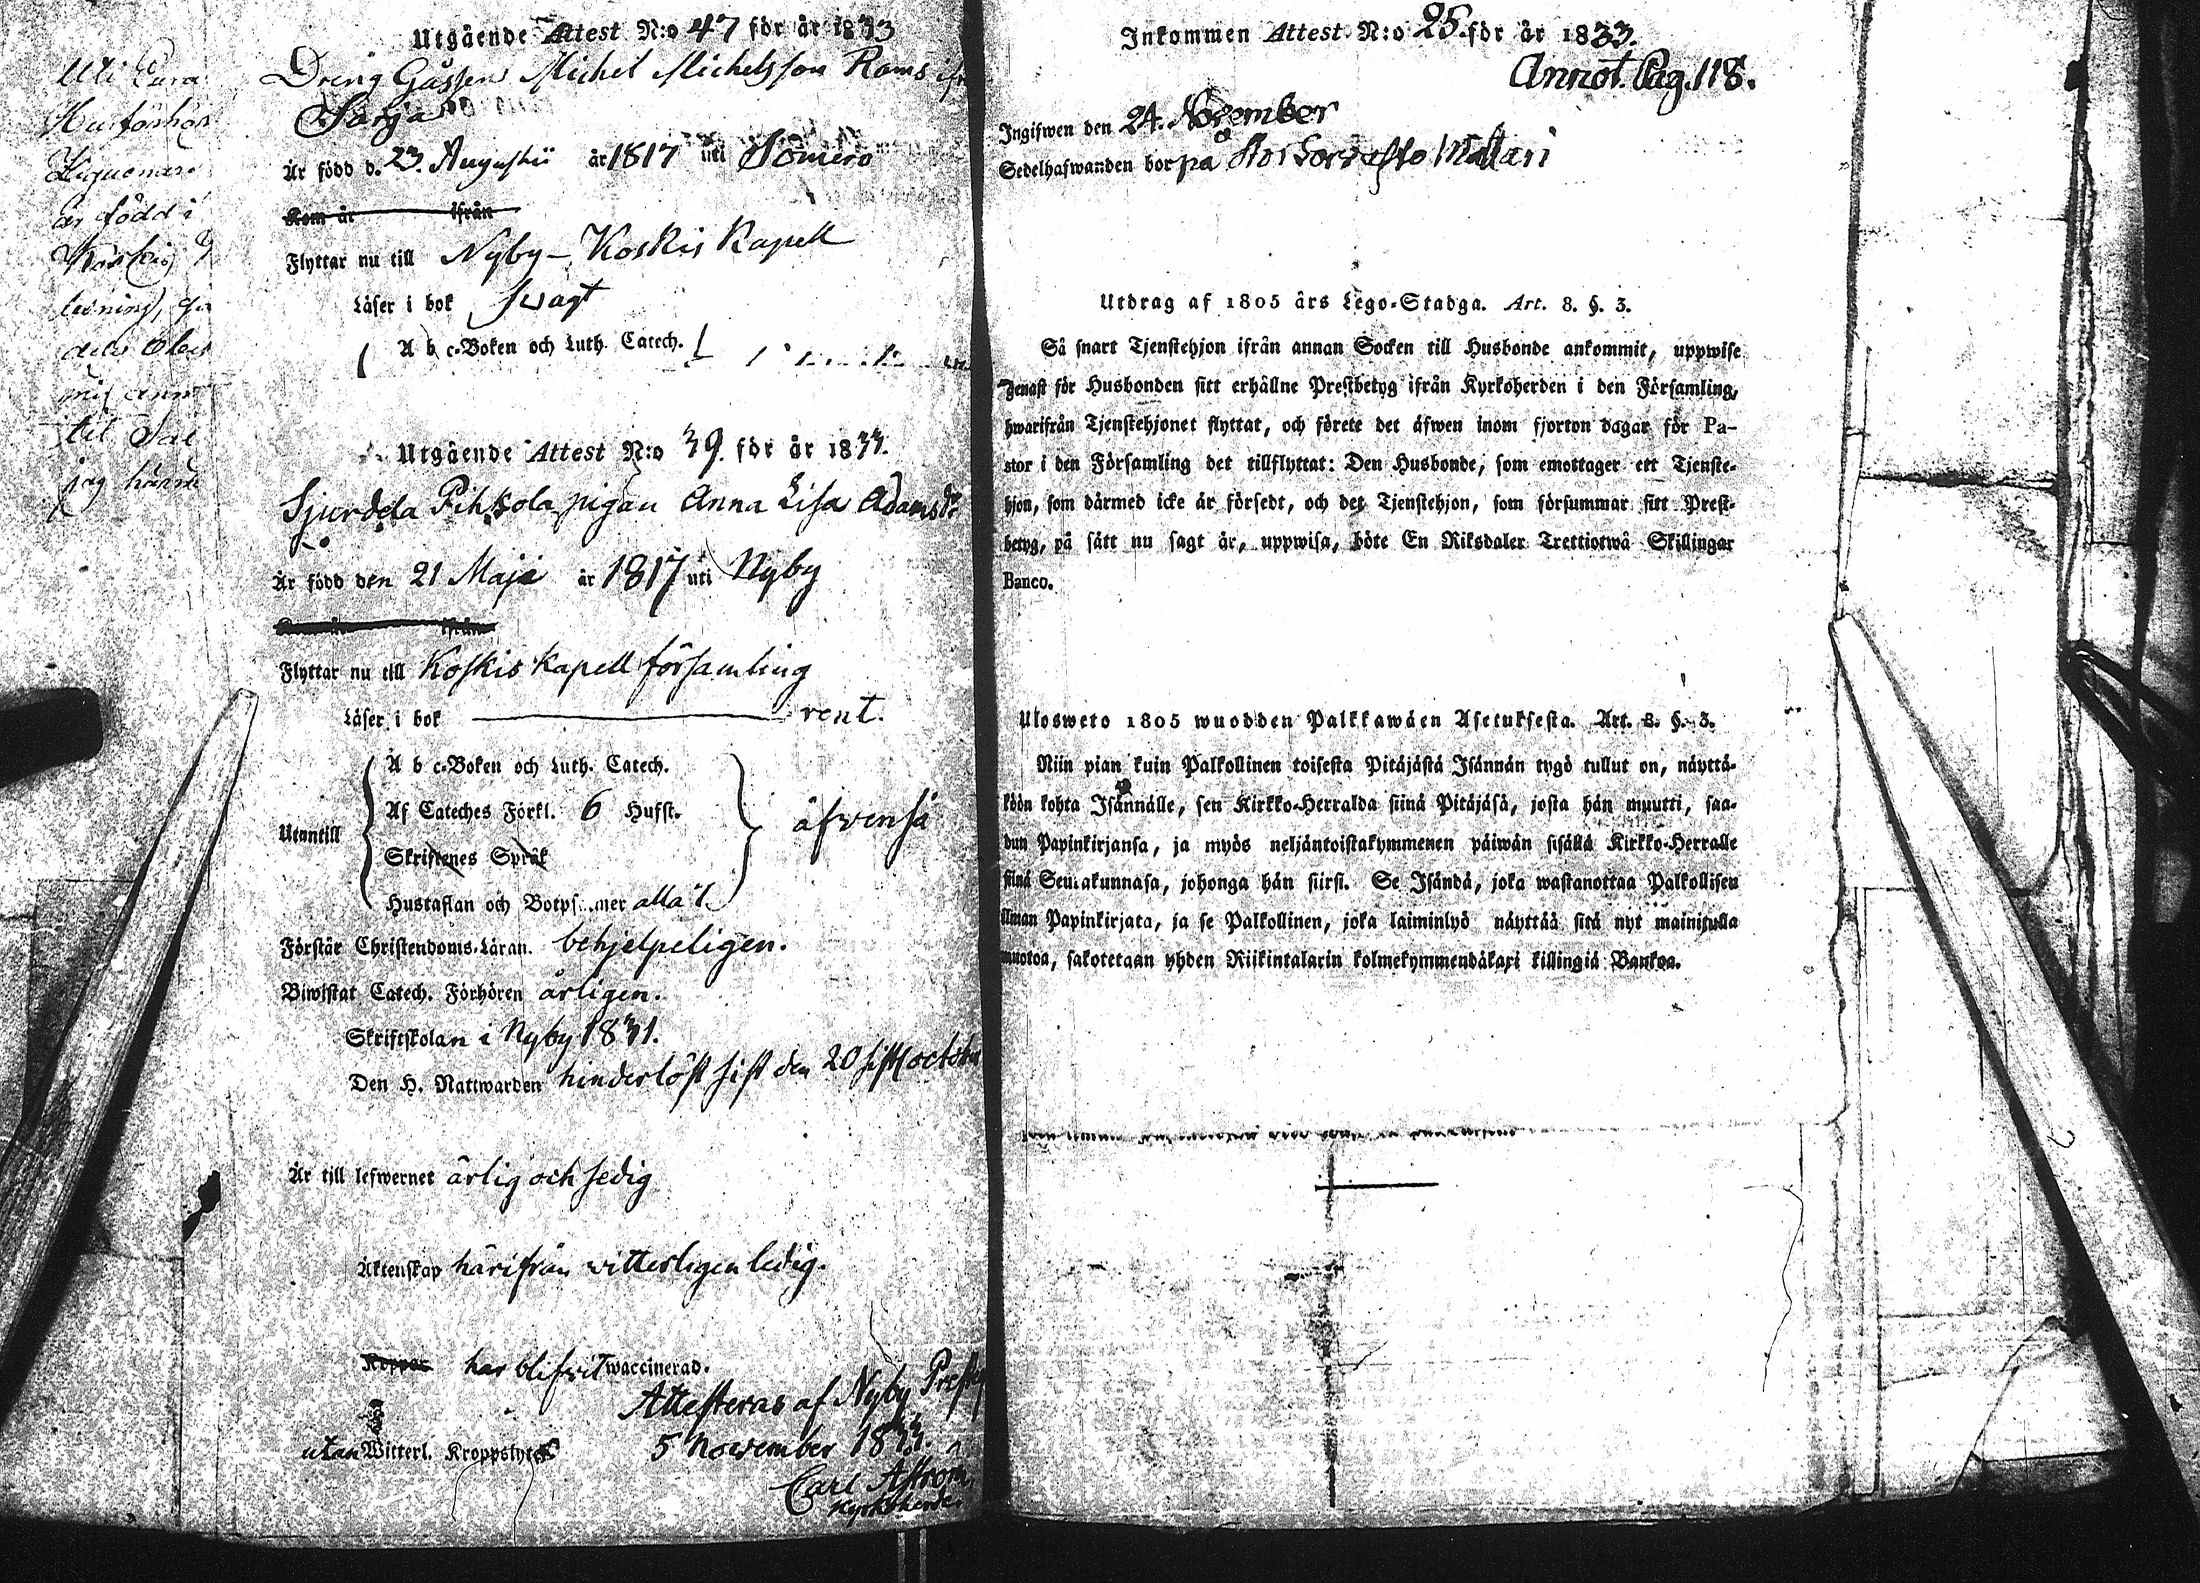 Utgående Attest N:o 47 för år 1833
Dreng Gåssen Michel Michelsson Rams ifr
Sarja
Är född d. 23. Augustii år 1817 uti Somero
Kom år ifrån
Flyttar nu till Nyby - Koskis Kapell
Läser i bok swagt
A b c-Boken och Luth. Catech.
är född i
til
jag
Utgående Attest N:o 39. för år 1833.
Sjurdela Pihkola pigan Anna Lisa Adamsdr
Är född den 21 Maji år 1817 uti Nyby
ifrån
Flyttar nu till Koskis Kapell församling
Läser i bok rent.
A b c-Boken och Luth. Catech.
Af Cateches Förkl. 6 Hufst.
Utantill äfvenså
Skriftenes Språk
Hustaflan och Botps..mer alla 7.
Förstår Christendoms-Läran. behjelpeligen.
Biwistat Catech. Förhören årligen.
Skriftskolan i Nyby 1831.
Den H. Nattwarden hinderlöst sist den 20 sistl october
Är till lefwernet ärlig och sedig
Äktenskap härifrån vitterligen ledig.
Koppor har blifvit waccinerad.
Attesteras af Nyby Prestg
utan Witterl. Kroppslyte 5 November 1833.
Carl Aström
Kyrkoherde.
Inkommen Attest N:o 25. för år 1833.
Annot. Pag. 118.
Ingifwen den 24. November
Sedelhafwanden bor på Mattari
Utdrag af 1805 års Lego-Stadga. Art. 8. §. 3.
Så snart Tjenstehjon ifrån annan Socken till Husbonde ankommit, uppwise
genast för Husbonden sitt erhållne Prestbetyg ifrån Kyrkoherden i den Församling,
hwarifrån Tjenstehjonet flyttat, och förete det äfwen inom fjorton dagar för Pa-
stor i den Församling det tillflyttat: Den Husbonde, som emottager ett Tjenste-
hjon, som därmed icke är försedt, och det Tjenstehjon, som försummar sitt Prest-
betyg, på sätt nu sagt är, uppwisa, böte En Riksdaler Trettiotwå Skillingar
Banco.
Ulosweto 1805 wuodden Palkkawäen Asetuksesta. Art. 8. §. 3.
Niin pian kuin Palkollinen toisesta Pitäjästä Isännän tygö tullut on, näyttä-
köön kohta Isännälle, sen Kirkko-Herralda siinä Pitäjäsä, josta hän muutti, saa-
dun Papinkirjansa, ja myös neljäntoistakymmenen päiwän sisällä Kirkko-Herralle
siinä Seurakunnasa, johonga hän siirsi. Se Isändä, joka wastanottaa Palkollisen
ilman Papinkirjata, ja se Palkollinen, joka laiminlyö näyttää sitä nyt mainitulla
muotoa, sakotetaan yhden Riikintalarin kolmekymmendäkaxi killingiä Bankoa.